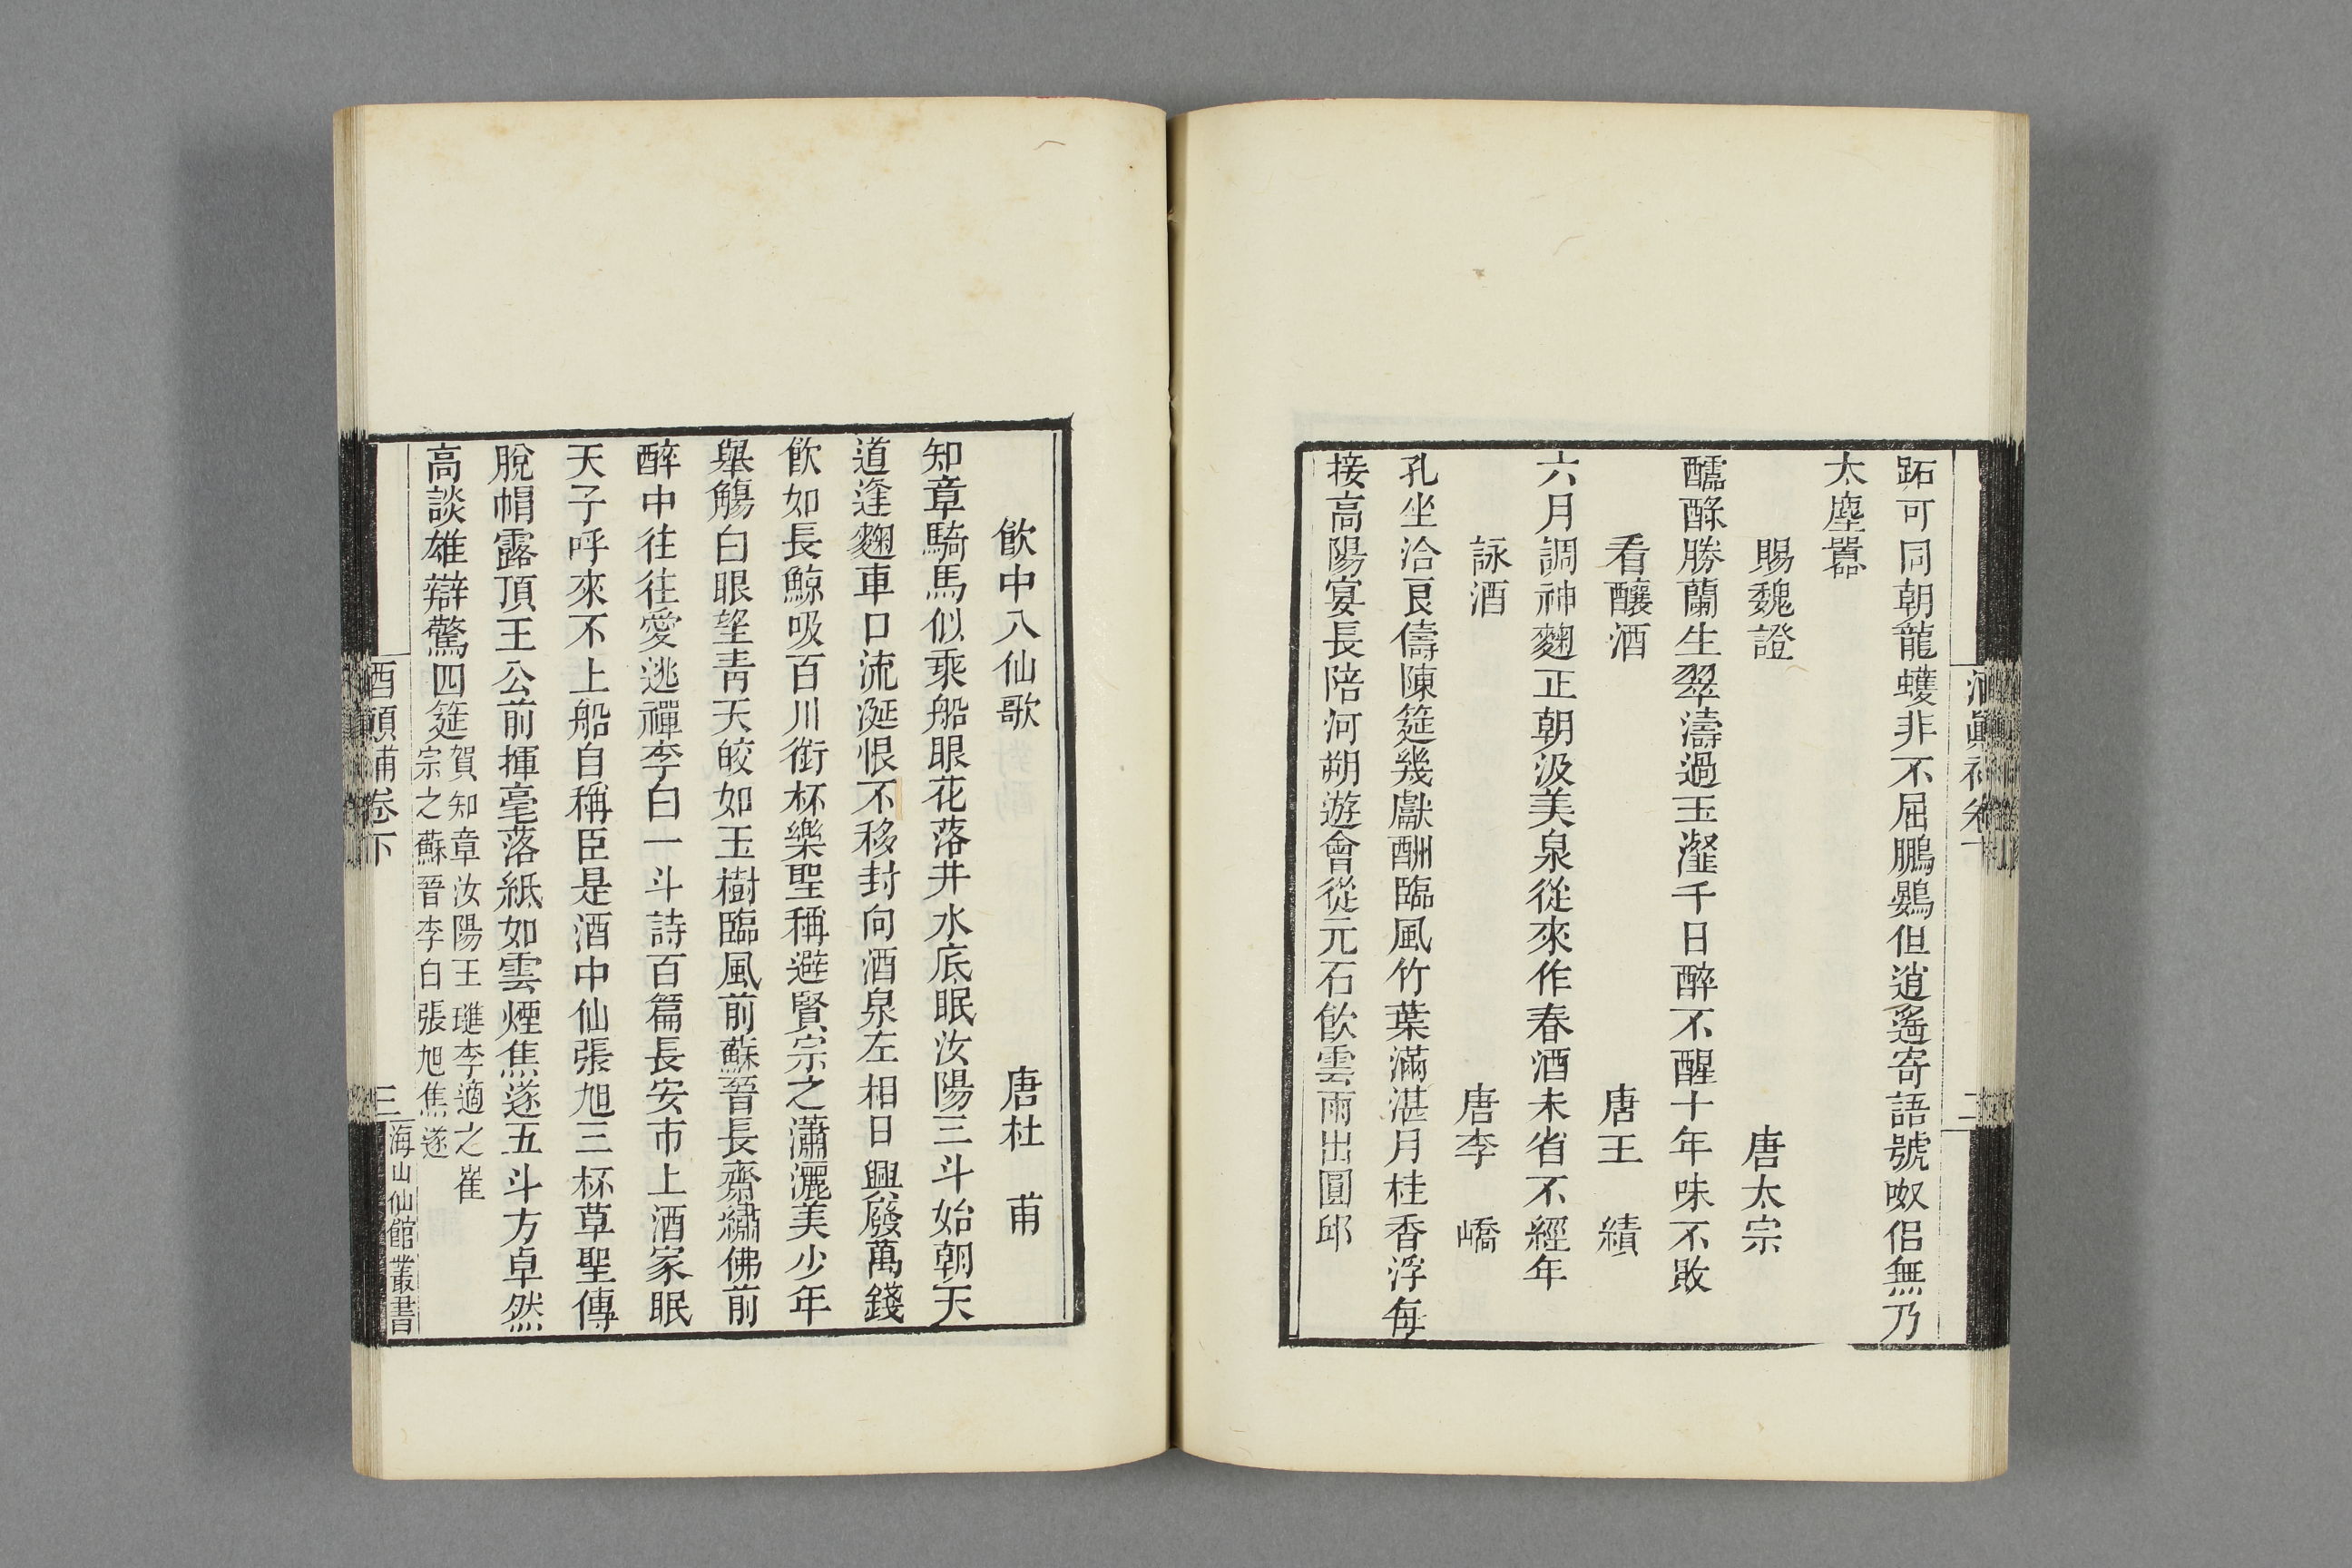 跖可同朝龍蠖非不屈鵬鷃但逍遙寄語號呶侶無乃
太塵囂
賜魏證 唐太宗
醽醁勝蘭生翠濤過玉瀣千日醉不醒十年味不敗
看釀酒 唐王績
六月調神麴正朝汲美泉從來作春酒未省不經年
詠酒 唐李嶠
孔坐洽良儔陳筵幾獻酬臨風竹葉滿湛月桂香浮每
接高陽宴長陪河朔遊會從元石飲雲雨出圓邱
飲中八仙歌 唐杜甫
知章騎馬似乘船眼花落井水底眠汝陽三斗始朝天
道逢麴車口流涎恨不移封向酒泉左相日興廢萬錢
飲如長鯨吸百川銜杯樂聖稱避賢宗之瀟灑美少年
舉觴白眼望青天皎如玉樹臨風前蘇晉長齋繡佛前
醉中往往愛逃禪李白一斗詩百篇長安市上酒家眠
天子呼來不上船自稱臣是酒中仙張旭三杯草聖傳
脫帽露頂王公前揮毫落紙如雲煙焦遂五斗方卓然
高談雄辯驚四筵賀知章汝陽王璡李適之崔
宗之蘇晉李白張旭焦遂
卷下
三
海山仙館叢書